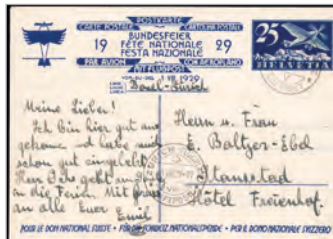 POSTKARTE
CARTE POSTALE CARTOLINA POSTALE
BUNDESFEIER
19 FÊTE NATIONALE 29
FESTA NAZIONALE
PAR AVION CON AEROPLANO
MIT FLUGPOST
1 VIII 1929
Basel-Zürich
25
HELVETIA
Meine Lieben!
Ich bin hier gut an-
gekommen und habe mich
schon gut eingelebt.
Herr geht in
an die Ferien. Mit Gruss
an alle Euer
Emil
Herrn u. Frau
E. Baltzer-Ebel
Stansstad
Hôtel Freienhof.
POUR LE DON NATIONAL SUISSE • FÜR DIE SCHWEIZ. NATIONALSPENDE • PER IL DONO NAZIONALE SVIZZERO